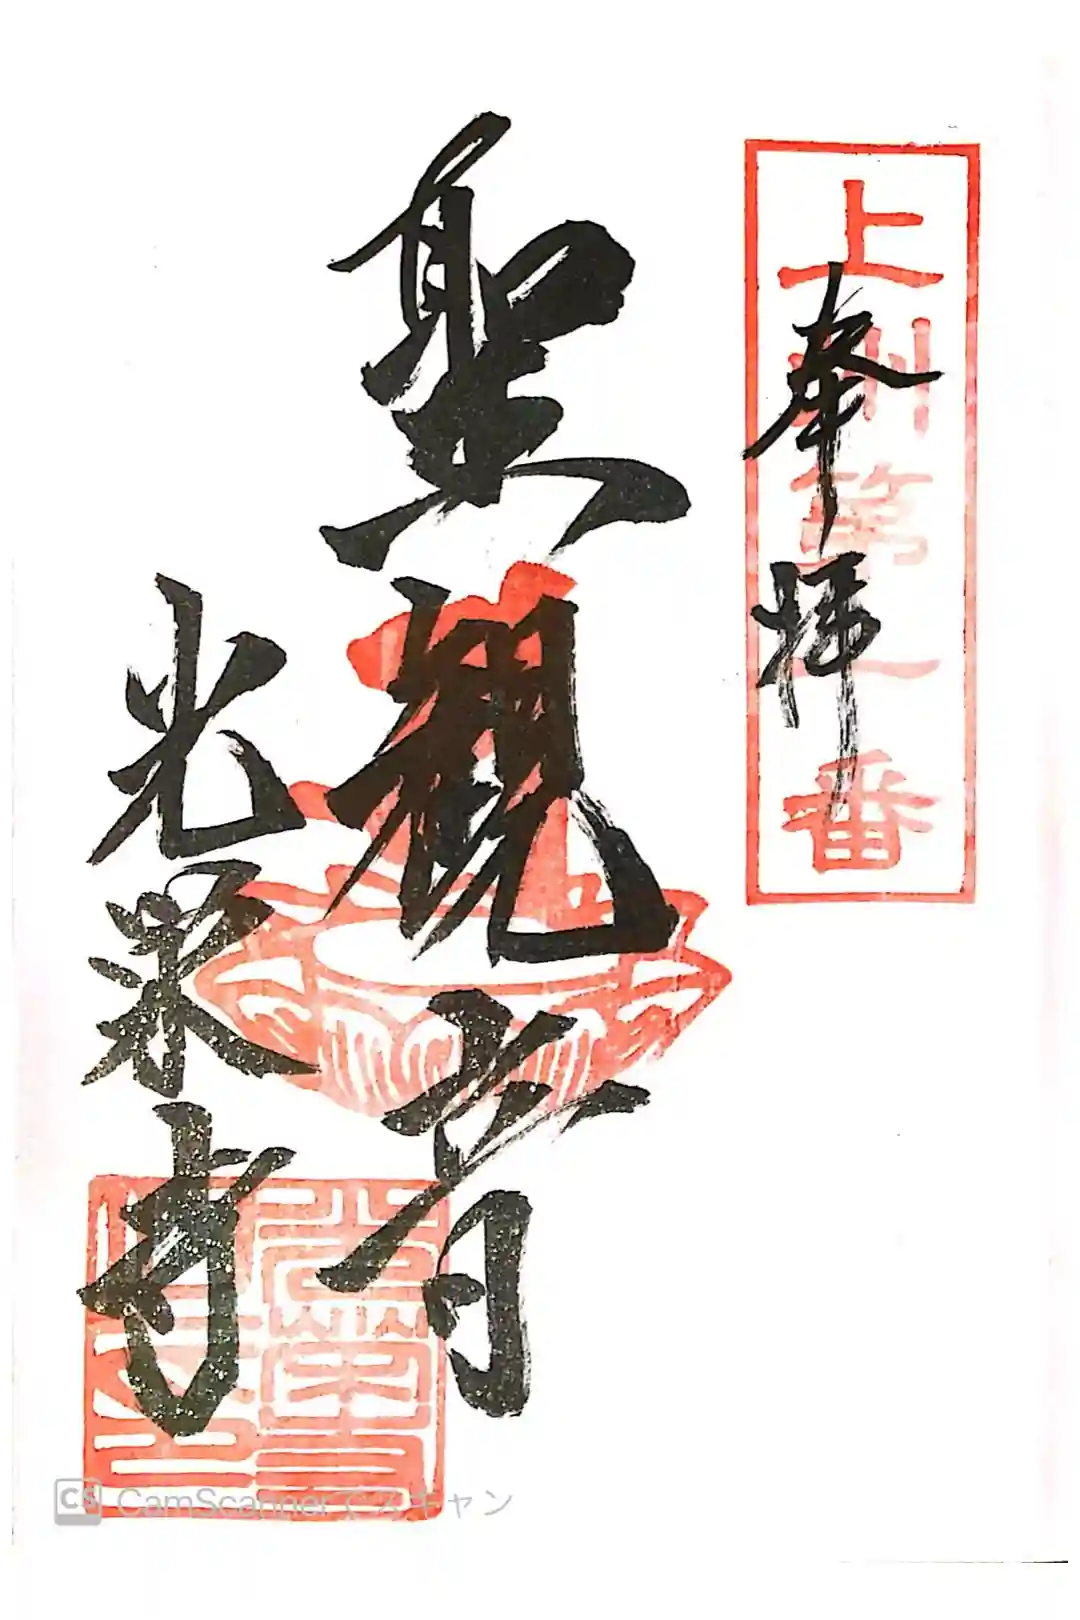 上州第一番
奉拝
聖観世音
光栄寺
CS CamScannerでスキャン